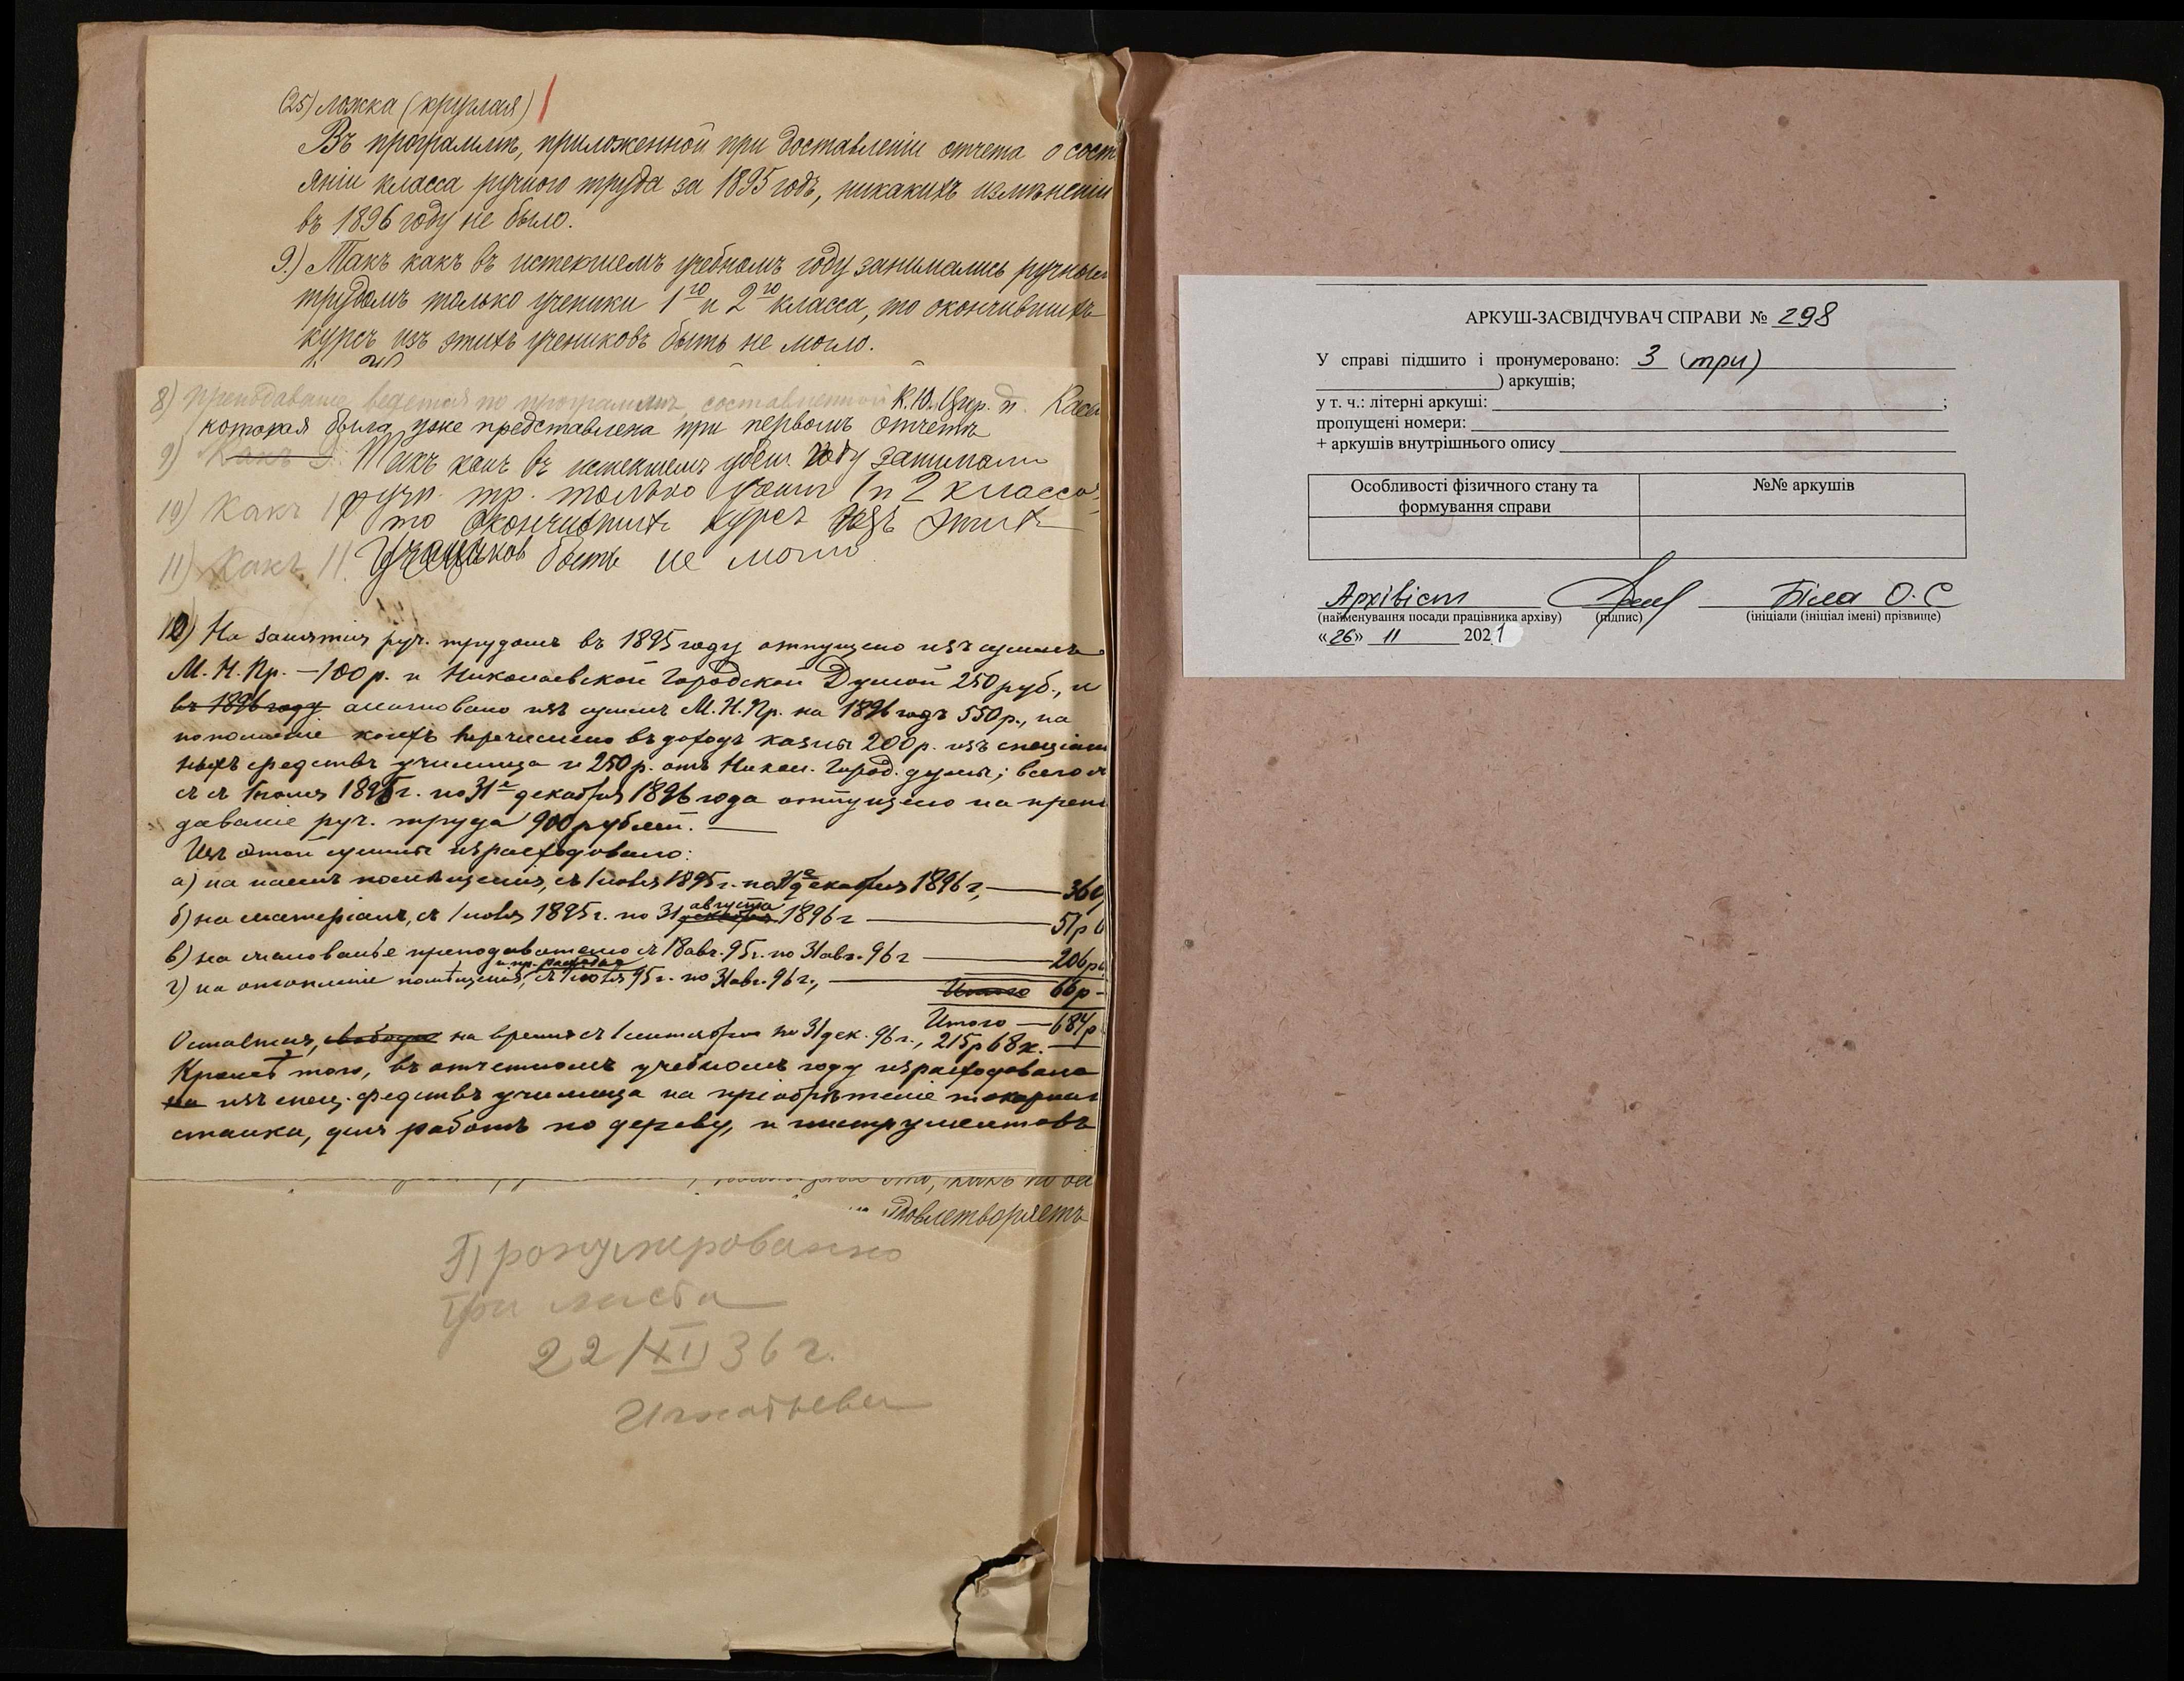 (25) ложка (круглая)
Въ программѣ, приложенной при доставленіи отчета о сост
яніи класса ручного труда за 1895 годъ, никакихъ измѣненій
въ 1896 году не было.
9.) Такъ какъ въ истекшемъ учебномъ году занимались ручным
трудомъ только ученики 1го и 2го класса, то окончившихъ
курсъ изъ этихъ учениковъ быть не могло.
8) преподаваніе ведется по программѣ, составленной К. Ю.
которая была уже представлена при первомъ отчетѣ
9) Какъ 9. Такъ какъ въ истекшемъ учебн. году занимали
10) Какъ 10 ручн. тр. только учен. 1 и 2 классов,
то окончившихъ курсъ изъ этихъ
11) Какъ 11. Учеников быть не могло
12) На занятія руч. трудомъ въ 1895 году отпущено изъ суммъ
М. Н. Пр. – 100 р. и Николаевской Городской Думой 250 руб., и
въ 1896 году ассигновано изъ суммъ М. Н. Пр. на 1896 годъ 550 р., на
пополненіе коихъ перечислено въ доходъ казны 200 р. изъ спеціаль
ныхъ средствъ училища и 250 р. отъ Никол. Город. думы; всего
съ 1 іюля 1895 г. по 31е декабря 1896 года отпущено на препо
даваніе руч. труда 900 рублей. —
Изъ этой суммы израсходовано:
а) на наемъ помѣщенія, съ 1 іюля 1895 г. по 31е декабря 1896 г, — 360
б) на матеріалъ, съ 1 іюля 1895 г. по 31 декабря августа 1896 г — 51 р
в) на жалованье преподавателю съ 18 авг. 95 г. по 31 авг. 96 г — 206 р
и пр. расходы
г) на отопленіе помѣщенія, съ 1 іюля 95 г. по 31 авг. 96 г., — Итого 66 р –
Итого — 684 р
Остатокъ, свободн на время съ 1 сентября по 31 дек. 96 г., 215 р 68 к. —
Кромѣ того, въ отчетномъ учебномъ году израсходовано
на изъ спец. средствъ училища на пріобрѣтеніе токарнаг
станка, для работъ по дереву, и инструментовъ
это, какъ по
довлетворяетъ
Пронумерованно
три листа
22/XII 36 г.
Игнатьева
АРКУШ-ЗАСВІДЧУВАЧ СПРАВИ № 298
У справі підшито і пронумеровано: 3 (три)
) аркушів;
у т. ч.: літерні аркуші: ;
пропущені номери:
+ аркушів внутрішнього опису
Особливості фізичного стану та формування справи №№ аркушів
Архівіст Біла О. С
(найменування посади працівника архіву) (підпис) (ініціали (ініціал імені) прізвище)
«26» 11 2021